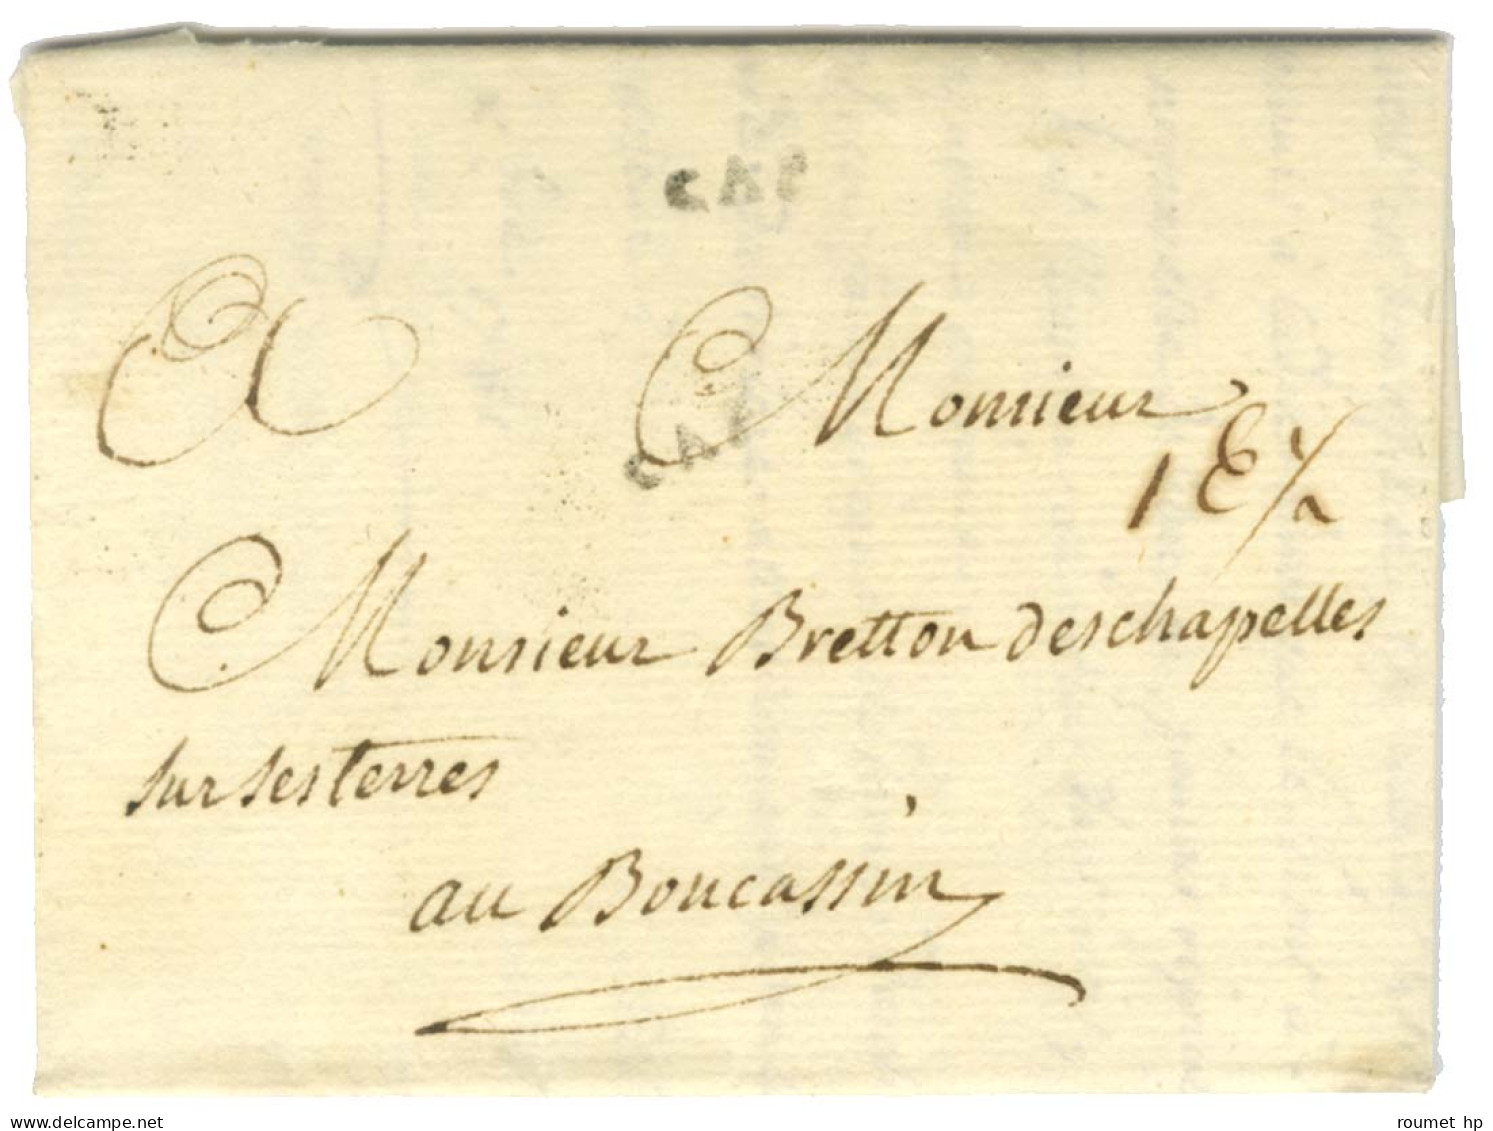 CAP
A Monsieur
CAP
Monsieur Bretton deschapelles
sur ses terres
au Boucassin
delcampe.net
roumet hp